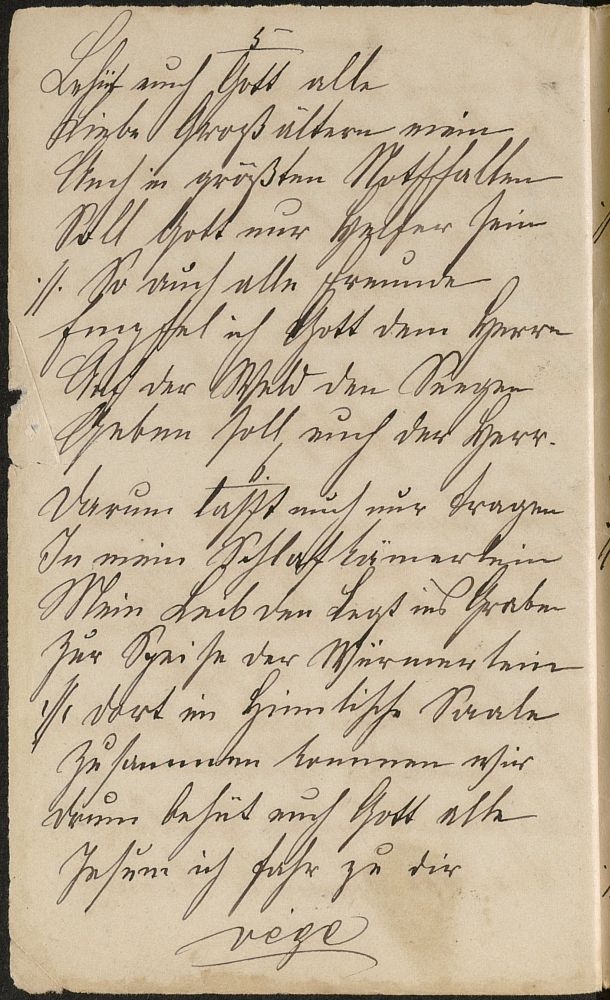 5
Behüt euch Gott alle
Liebe Großältern mein
Auch in größten Nothffallen
Soll Gott nur Helfer sein
:/: So auch alle freunde
Empffel ich Gott dem Herrn
Auf der Weld den Seegen
Geben soll euch der Herr.
6.
Darum lasst mich nur tragen
In mein Schlafkämerlein
Mein Leib den legt ins Graben
Zur Speise der Würmerlein
:/: dort im Himlische Saale
Zusammen kommen wir
drum behüt euch Gott alle
Jesum ich fahr zu dir
vége